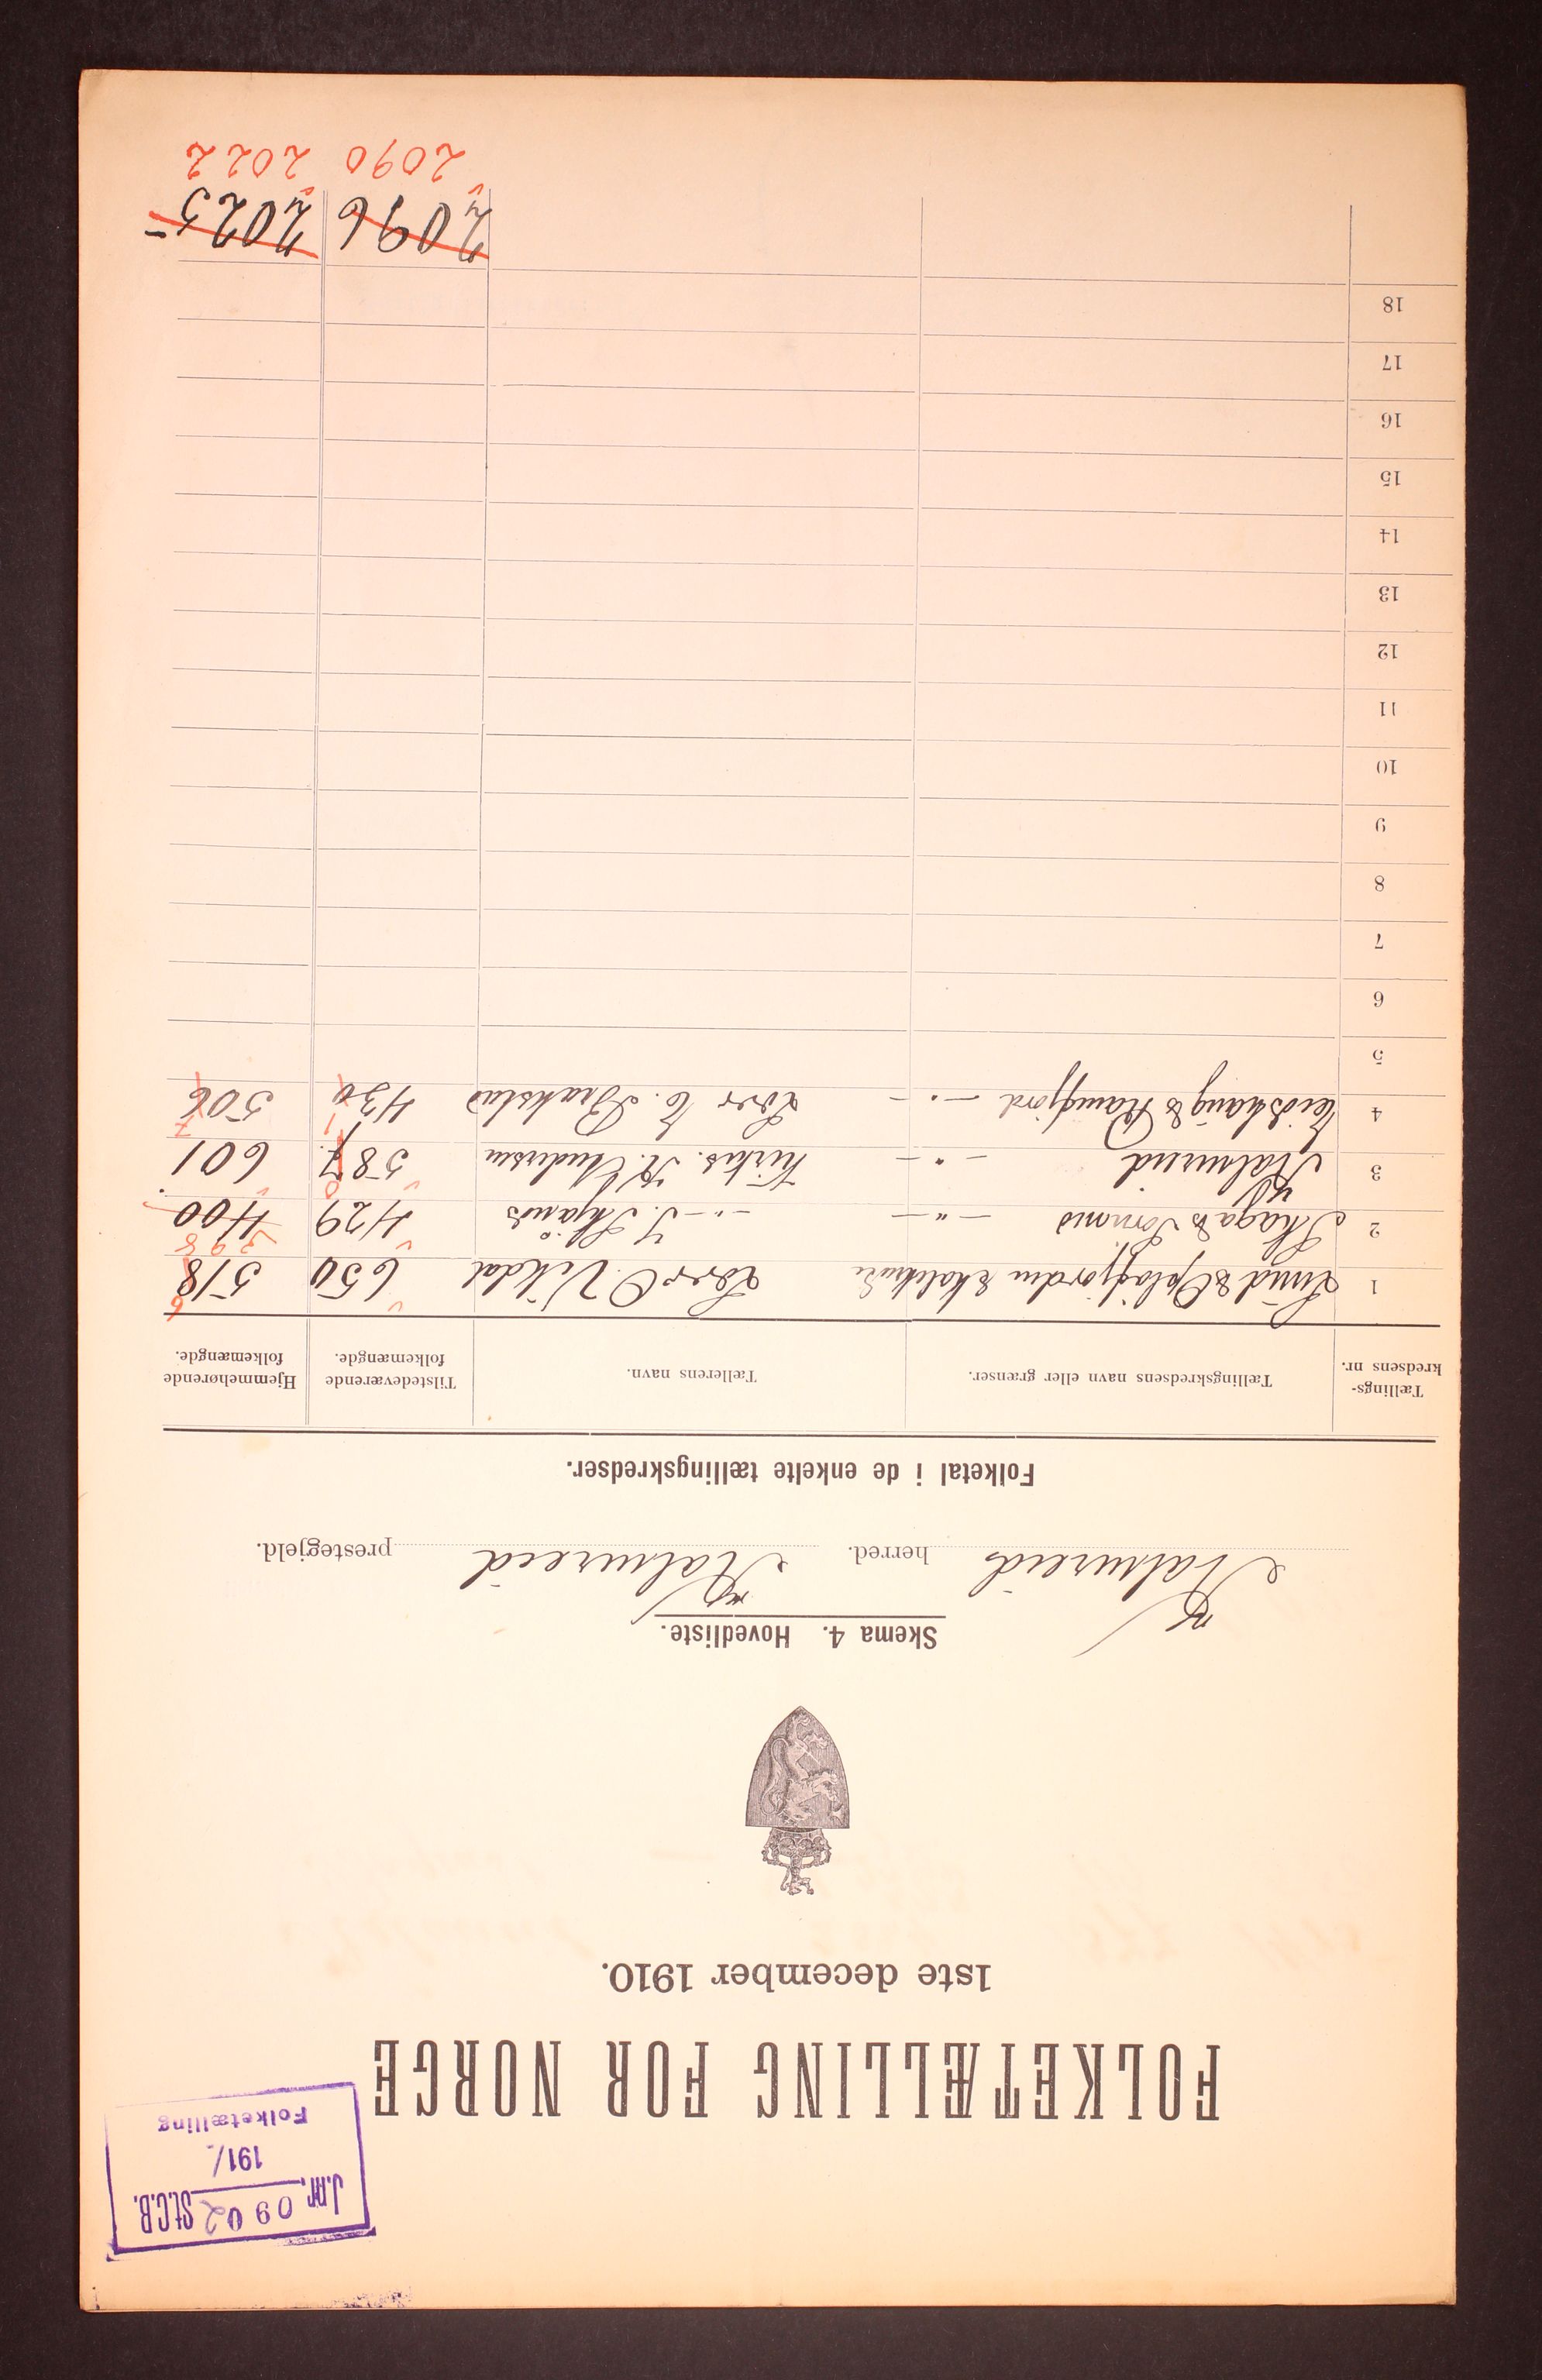 J.nr. 0902 St.C.B.
191/
Folketælling
FOLKETÆLLING FOR NORGE
1ste december 1910.
Skema 4. Hovedliste.
Kolvereid herred. Kolvereid prestegjeld.
Folketal i de enkelte tællingskredser.
Tællings-kredsens nr. Tællingskredsens navn eller grænser. Tællerens navn. Tilstedeværende folkemængde. Hjemmehørende folkemængde.
1 Lund & Opløfjorden skolekreds Lærer O. Vikdal 650 518 6
2 Skaga & Tornans —"— —"— J. Skjånes 429 400 398
3 Kolvereid —"— Kirkes. K. Andersen 587 0 601
4 Eidshaug & Ramfjord —"— Lærer E. Brakstad 430 1 506 7
5
6
7
8
9
10
11
12
13
14
15
16
17
18
2096 2025
2090 2022